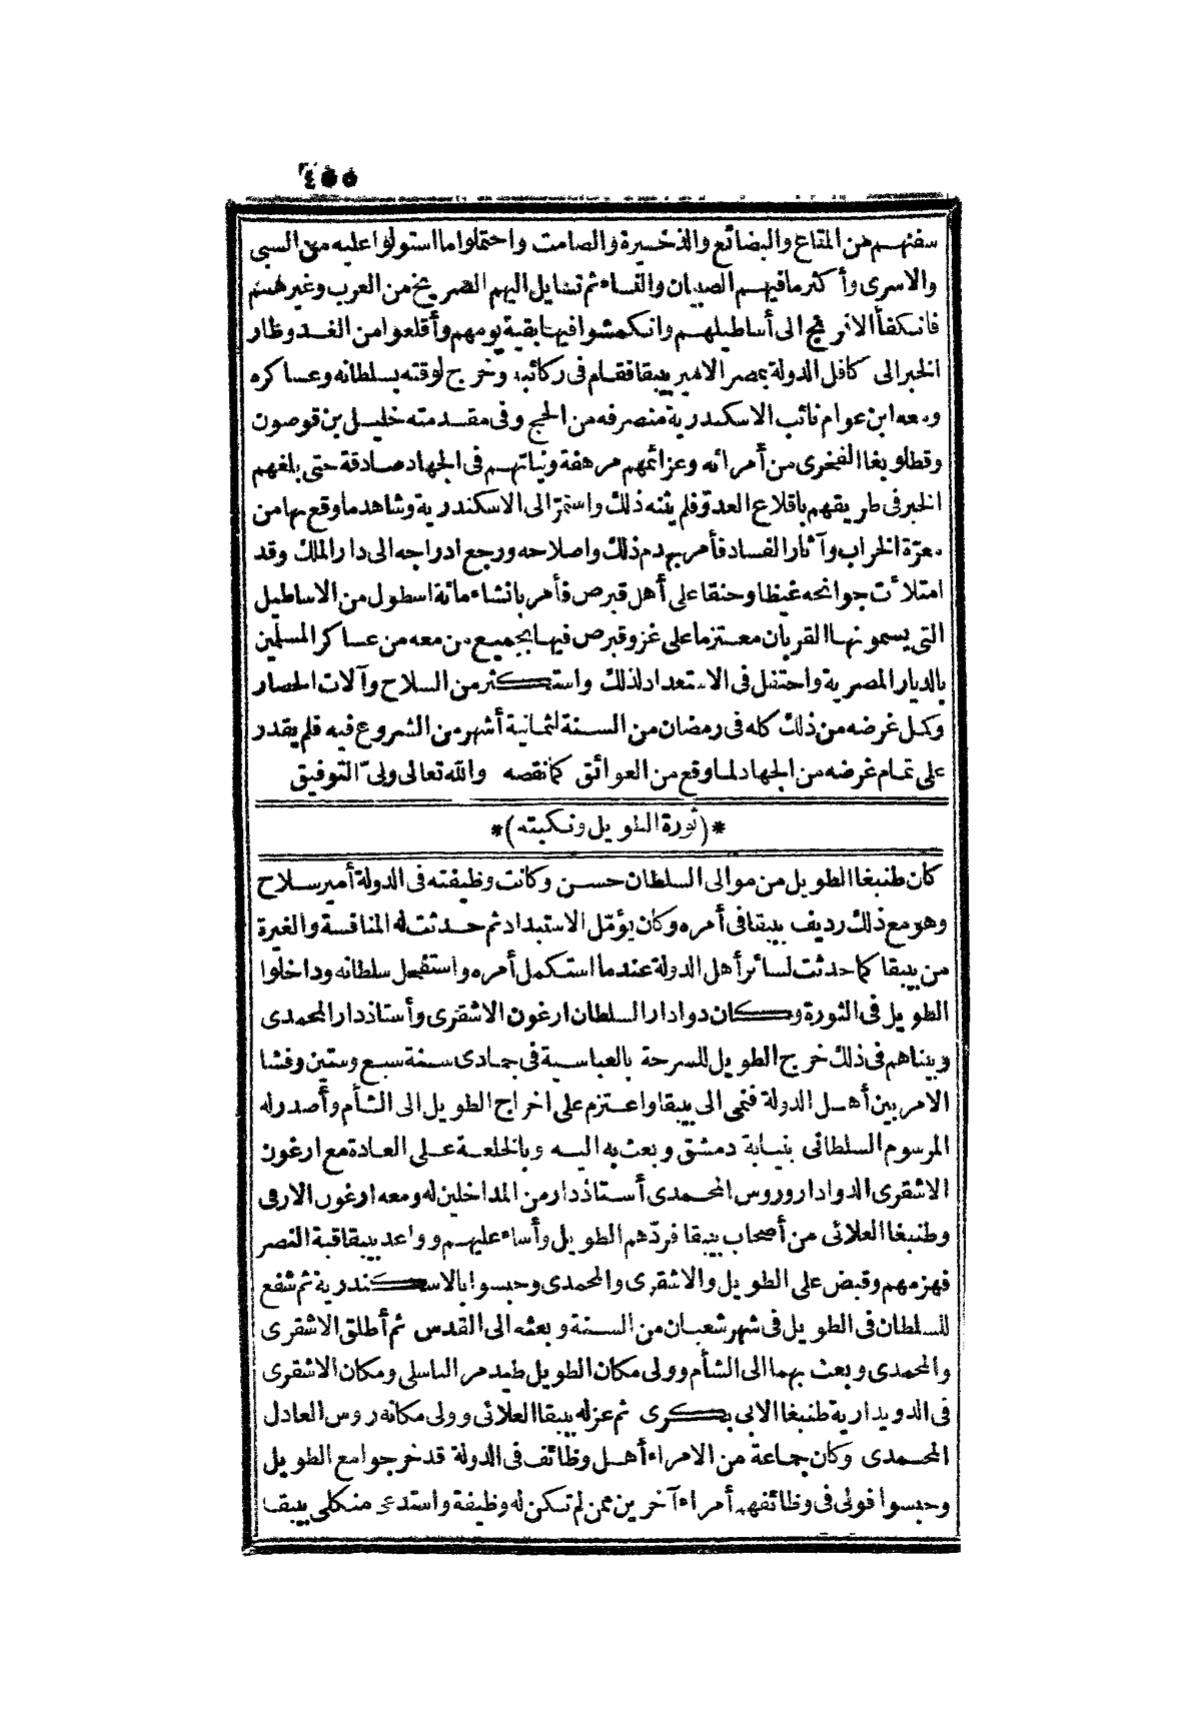 ٤٥٥
سفنهم من المتاع والبضائع والذخيرة والصامت واحتملوا ما استولوا عليه من السبى
والاسرى وأكثر ما فيهم الصبيان والنساء ثم تسايل اليهم الصريخ من العرب وغيرهم
فانكفأ الافرنج الى أساطيلهم وانكمشوا فيها بقية يومهم وأقلعوا من الغد وطار
الخبر الى كافل الدولة بمصر الامير يبيقا فقام فى ركائبه وخرج لوقته بسلطانه وعساكره
ومعه ابن عوام نائب الاسكندرية منصرفه من الحج وفى مقدمته خليل بن قوصون
وقطلوبغا الفخرى من أمرائه وعزائمهم مرهفة ونياتهم فى الجهاد صادقة حتى بلغهم
الخبر فى طريقهم باقلاع العدوّ فلم يثنه ذلك واستمرّ الى الاسكندرية وشاهد ما وقع بها من
معرّة الخراب وآثار الفساد فأمر بهدم ذلك واصلاحه ورجع ادراجه الى دار الملك وقد
امتلأت جوانحه غيظا وحنقا على أهل قبرص فأمر بانشاء مائة اسطول من الاساطيل
التى يسمونها القربان معتزما على غزو قبرص فيها بجميع من معه من عساكر المسلمين
بالديار المصرية واحتفل فى الاستعداد لذلك واستكثر من السلاح وآلات الحصار
وكمل غرضه من ذلك كله فى رمضان من السنة لثمانية أشهر من الشروع فيه فلم يقدر
على تمام غرضه من الجهاد لما وقع من العوائق كما نقصه والله تعالى ولىّ التوفيق
*(ثورة الطويل ونكبته)*
كان طنبغا الطويل من موالى السلطان حسن وكانت وظيفته فى الدولة أمير سلاح
وهو مع ذلك رديف يبيقا فى أمره وكان يؤمّل الاستبداد ثم حدثت له المنافسة والغيرة
من يبيقا كما حدثت لسائر أهل الدولة عندما استكمل أمره واستفحل سلطانه وداخلوا
الطويل فى الثورة وكان دوادار السلطان ارغون الاشقرى وأستاذدار المحمدى
وبيناهم فى ذلك خرج الطويل للسرحة بالعباسية فى جمادى سنة سبع وستين وفشا
الامر بين أهل الدولة فنمى الى يبيقا واعتزم على اخراج الطويل الى الشأم وأصدر له
المرسوم السلطانى بنيابة دمشق وبعث به اليه وبالخلعة على العادة مع ارغون
الاشقرى الدوادار وروس المحمدى أستاذدار من المداخلين له ومعه ارغون الارقى
وطنبغا العلائى من أصحاب يبيقا فردّهم الطويل وأساء عليهم وواعد يبيقا قبة القصر
فهزمهم وقبض على الطويل والاشقرى والمحمدى وحبسوا بالاسكندرية ثم شفع
للسلطان فى الطويل فى شهر شعبان من السنة وبعثه الى القدس ثم أطلق الاشقرى
والمحمدى وبعث بهما الى الشأم وولى مكان الطويل طيدمر الباسلى ومكان الاشقرى
فى الدويدارية طنبغا الابى بكرى ثم عزله يبيقا العلائى وولى مكانه روس العادل
المحمدى وكان جماعة من الامراء أهل وظائف فى الدولة قد خرجوا مع الطويل
وحبسوا فولى فى وظائفهم أمراء آخرين ممن لم تكن له وظيفة واستدعى منكلى يبيقا